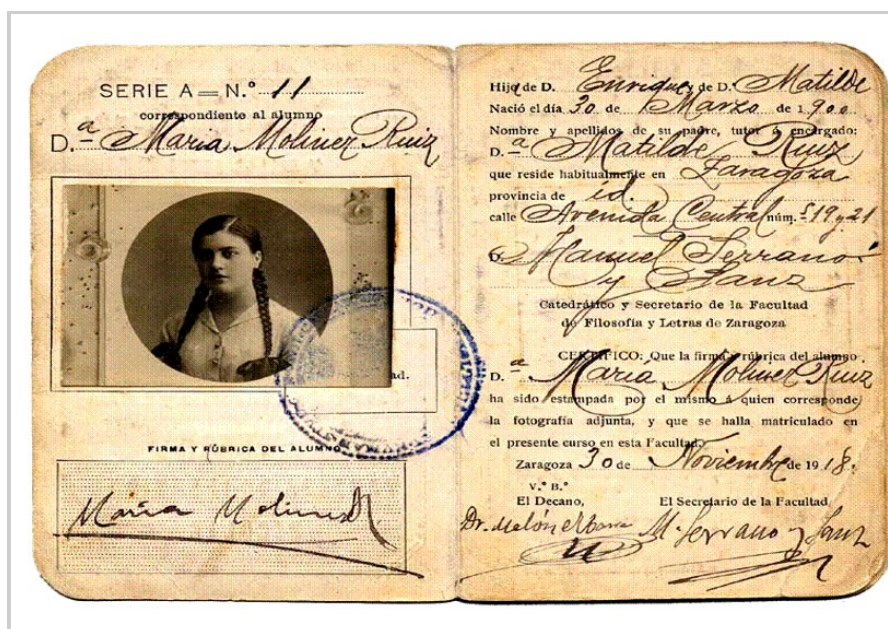 SERIE A = N.º 11
correspondiente al alumno
D.ª María Moliner Ruiz
ad.
FIRMA Y RÚBRICA DEL ALUMNO
María Moliner
Hija de D. Enrique y de D. Matilde
Nació el día 30 de Marzo de 1900
Nombre y apellidos de su padre, tutor ó encargado:
D.ª Matilde Ruiz
que reside habitualmente en Zaragoza
provincia de id.
calle Avenida Central núm. 19 y 21
D. Manuel Serrano
y Sanz
Catedrático y Secretario de la Facultad
de Filosofía y Letras de Zaragoza
CERTIFICO: Que la firma y rúbrica del alumno
D.ª María Moliner Ruiz
ha sido estampada por el mismo á quien corresponde
la fotografía adjunta, y que se halla matriculado en
el presente curso en esta Facultad.
Zaragoza 30 de Noviembre de 1918.
V.º B.º
El Decano, El Secretario de la Facultad
Dr. M. Serrano y Sanz